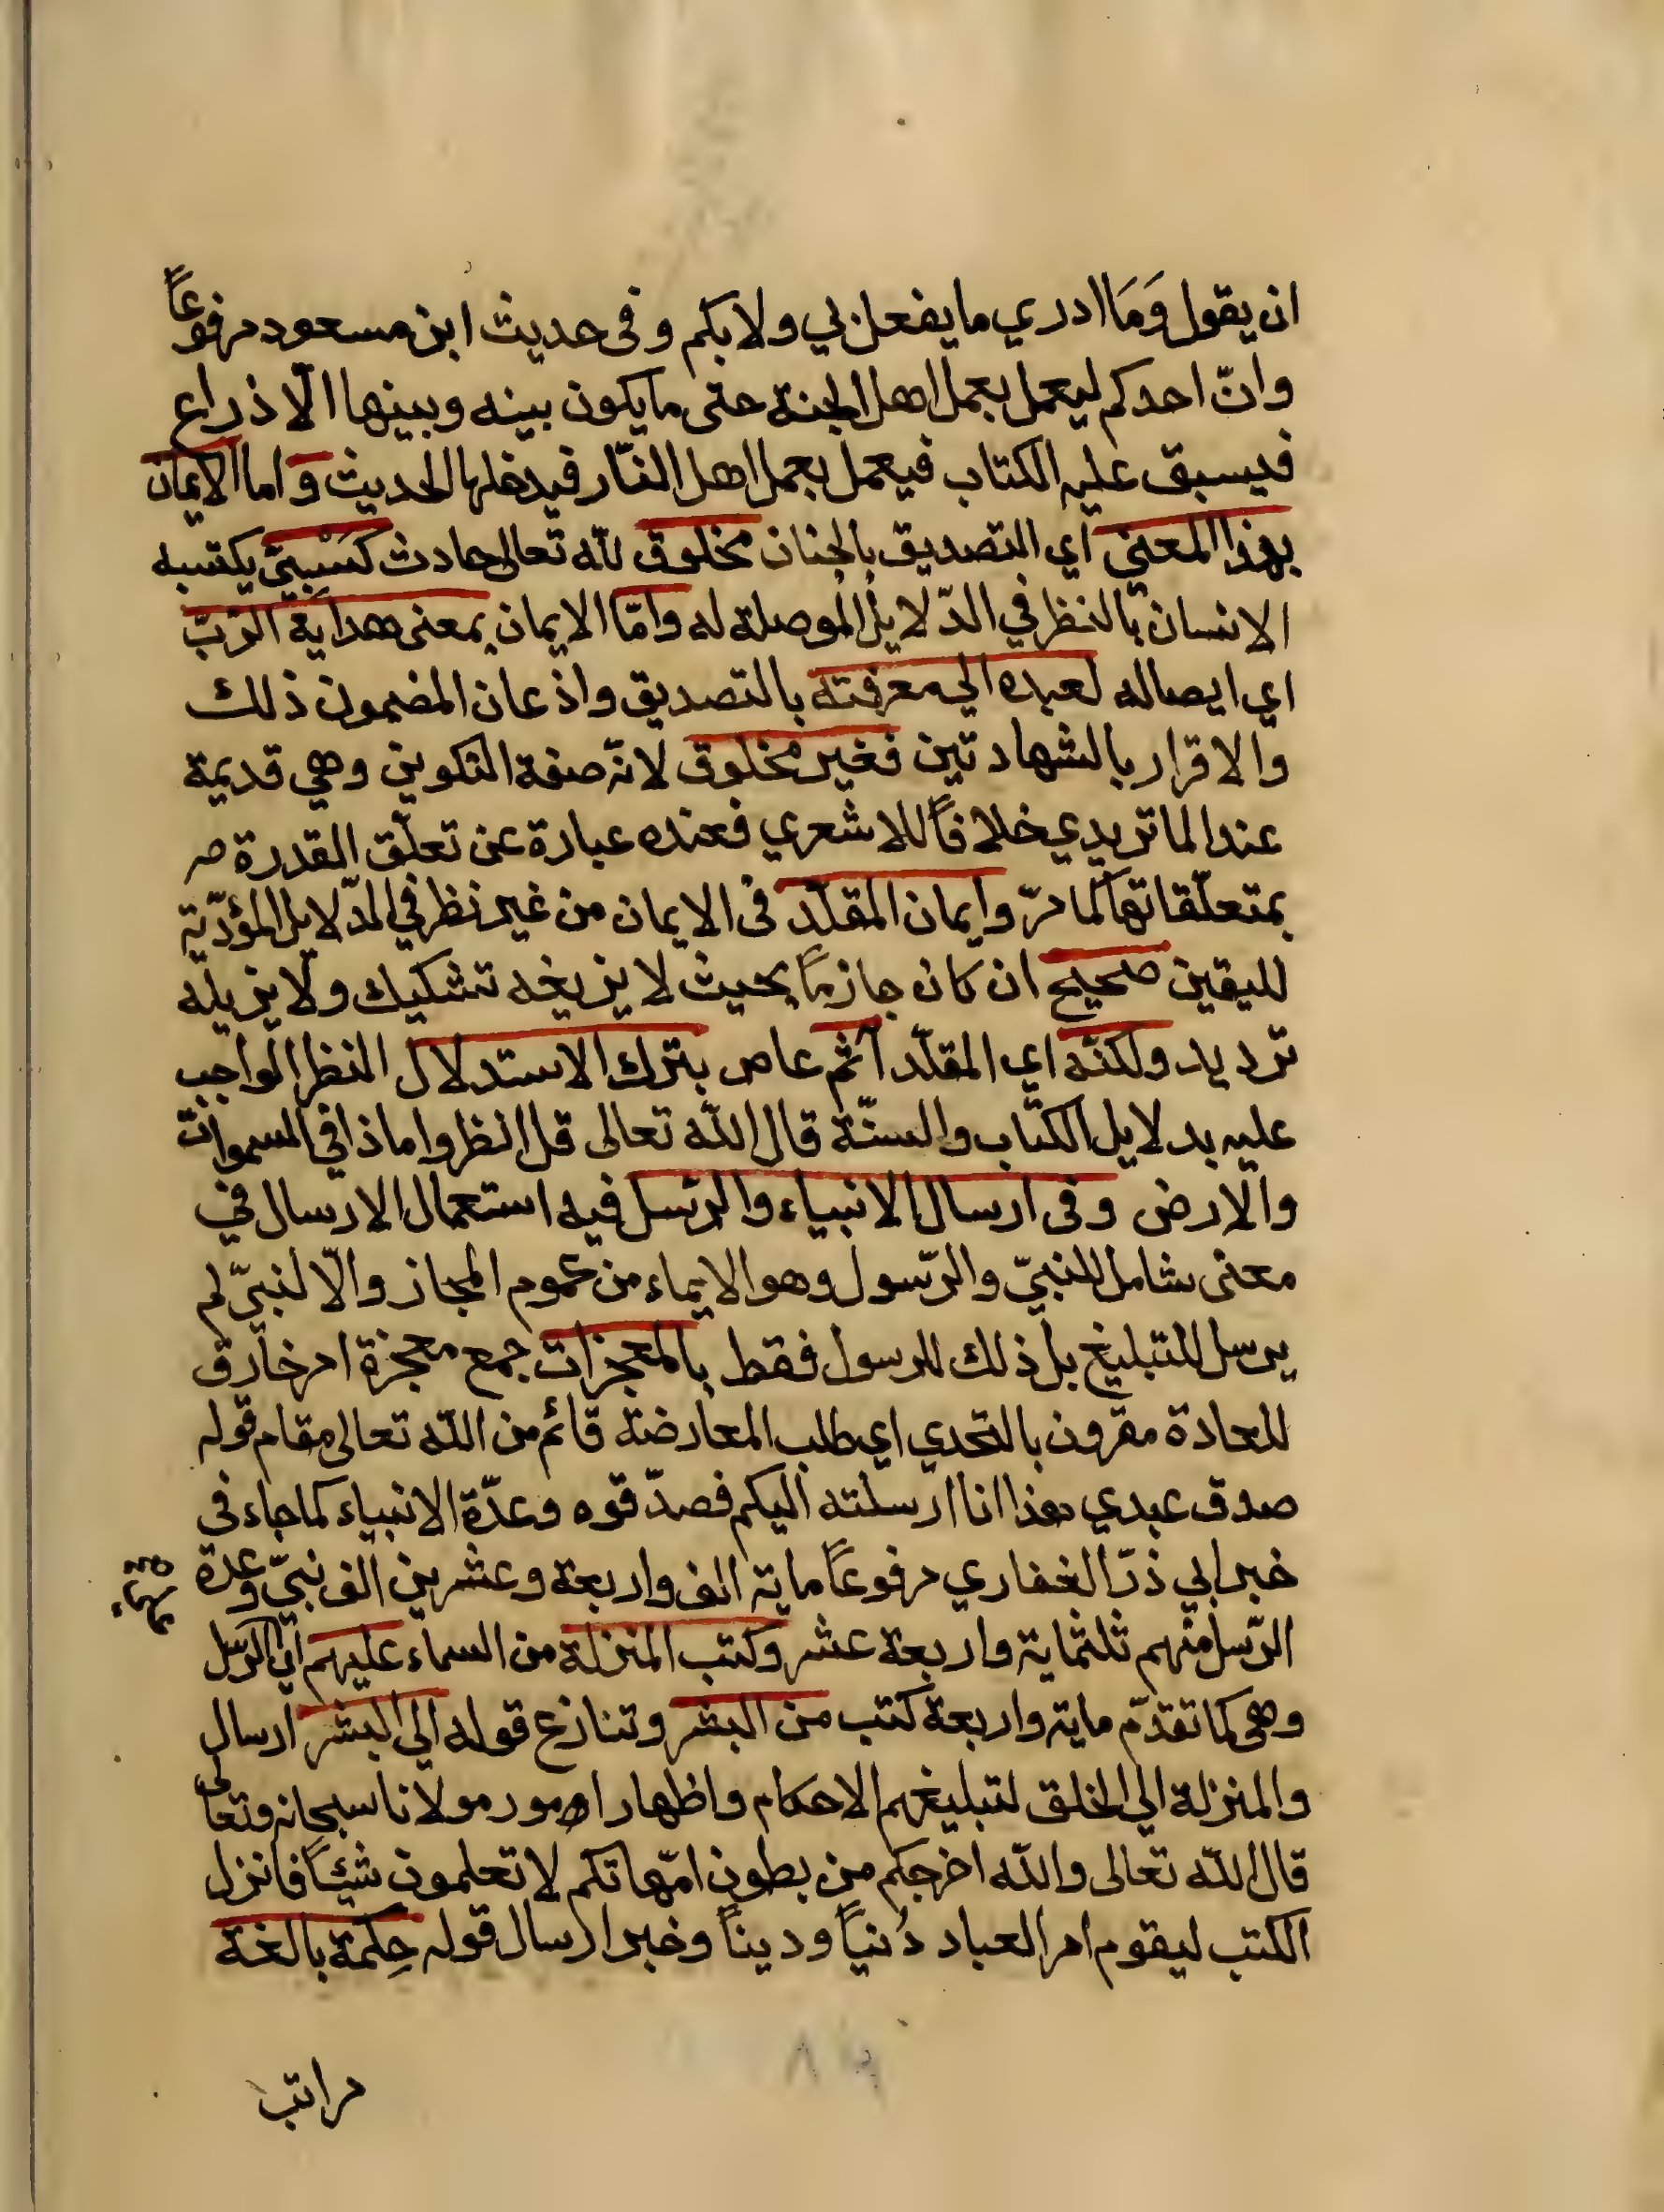 ان يقول وَمَا ادري ما يفعل بي ولا بكم وفى حديث ابن مسعود مرفوعاً
وانّ احدكم ليعمل بعمل اهل الجنة حتى ما يكون بينه وبينها الّا ذراع
فيسبق عليه الكتاب فيعمل بعمل اهل النّار فيدخلها الحديث وَاما الايمان
بهذا المعنى اي التصديق بالجنان مخلوق لله تعالى حادث كَسْبيّ يكتسبه
الانسان بالنظر في الدّلايل الموصلة له وامّا الايمان بمعنى هداية الرّبّ
اي ايصاله لعبده الى معرفته بالتصديق واذعان المضمون ذلك
والاقرار بالشهادتين فغير مخلوق لانّه صفة التكوين وهي قديمة
عند الماتريدي خلافاً للاشعري فعنده عبارة عن تعلّق القدرة
بمتعلّقاتها كما مرّ وايمان المقلّد فى الايمان من غير نظر في الدّلايل المؤدّية
لليقين صحيح ان كان جازماً بحيث لا يزيغه تشكيك ولا يزيله
ترديد ولكنّه اي المقلّد آثم عاص بترك الاستدلال النظر الواجب
عليه بدلايل الكتاب والسنّة قال الله تعالى قل انظروا ماذا في السموات
والارض وفى ارسال الانبياء والرّسل فيه استعمال الارسال في
معنى شامل للنبيّ والرّسول وهو الايماء من عموم المجاز والّا لنبيّ لم
يرسل للتبليغ بل ذلك للرسول فقط بالمعجزات جمع معجزة امر خارق
للعادة مقرون بالتحدي اي طلب المعارضة قائم من الله تعالى مقام قوله
صدق عبدي هذا انا ارسلته اليكم فصدّقوه وعدّة الانبياء كما جاء فى
خبر ابي ذرّ الغفاري مرفوعاً ماية الف واربعة وعشرين الف نبيّ وعدة
الرّسل منهم ثلثماية واربعة عشر وكتب المنزلة من السماء عليهم اي الرّسل
وهى كما تقدّم ماية واربعة كتب من البشر وتنازع قوله الى البشر ارسال
والمنزلة الى الخلق لتبليغهم الاحكام واظهار امور مولانا سبحانه وتعالى
قال الله تعالى والله اخرجكم من بطون امّهاتكم لا تعلمون شيئاً فانزل
الكتب ليقوم امر العباد دُنياً وديناً وخبر ارسال قوله حِكمة بالغة
مراتب